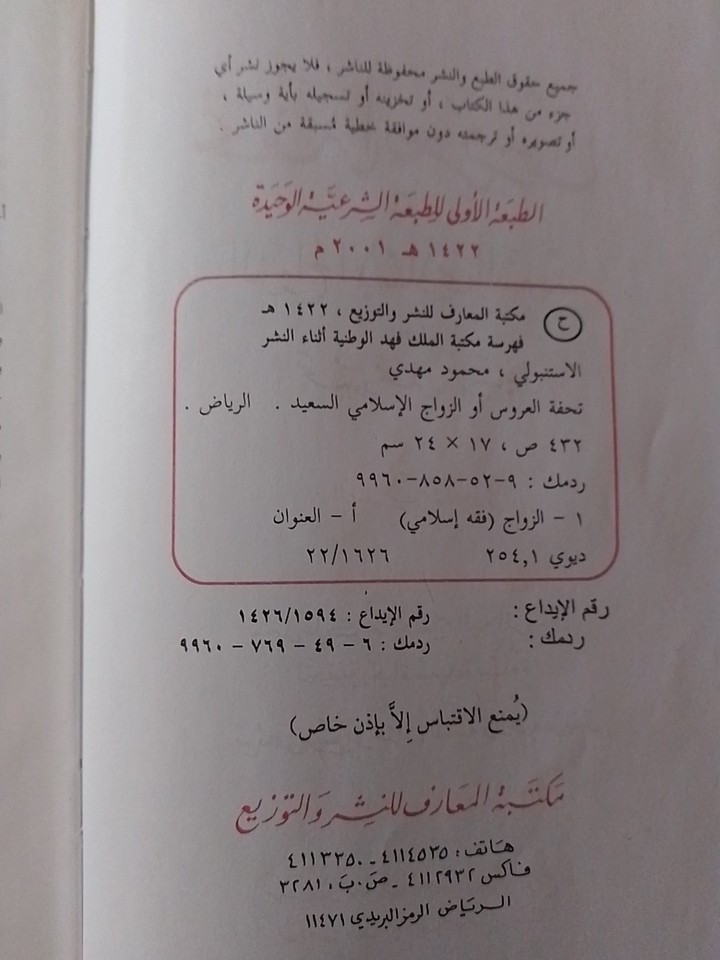 جميع حقوق الطبع والنشر محفوظة للناشر ، فلا يجوز نشر أي
جزء من هذا الكتاب ، أو تخزينه أو تسجيله بأية وسيلة ،
أو تصويره أو ترجمته دون موافقة خطية مُسبقة من الناشر .
الطبعة الأولى للطبعة الشرعية الوحيدة
١٤٢٢ هـ ٢٠٠١ م
ح مكتبة المعارف للنشر والتوزيع ، ١٤٢٢ هـ
فهرسة مكتبة الملك فهد الوطنية أثناء النشر
الاستنبولي ، محمود مهدي
تحفة العروس أو الزواج الإسلامي السعيد . الرياض .
٤٣٢ ص ، ١٧ × ٢٤ سم
ردمك : ٩-٥٢-٨٥٨-٩٩٦٠
١ - الزواج (فقه إسلامي) أ - العنوان
ديوي ٢٥٤,١ ٢٢/١٦٢٦
رقم الإيداع : رقم الإيداع : ١٤٢٦/١٥٩٤
ردمك : ردمك : ٦ - ٤٩ - ٧٦٩ - ٩٩٦٠
(يُمنع الاقتباس إلاَّ بإذن خاص)
مكتبة المعارف للنشر والتوزيع
هاتف : ٤١١٤٥٣٥ - ٤١١٣٣٥٠
فاكس ٤١١٢٩٣٢ - ص.ب. ٣٢٨١
الرياض الرمز البريدي ١١٤٧١